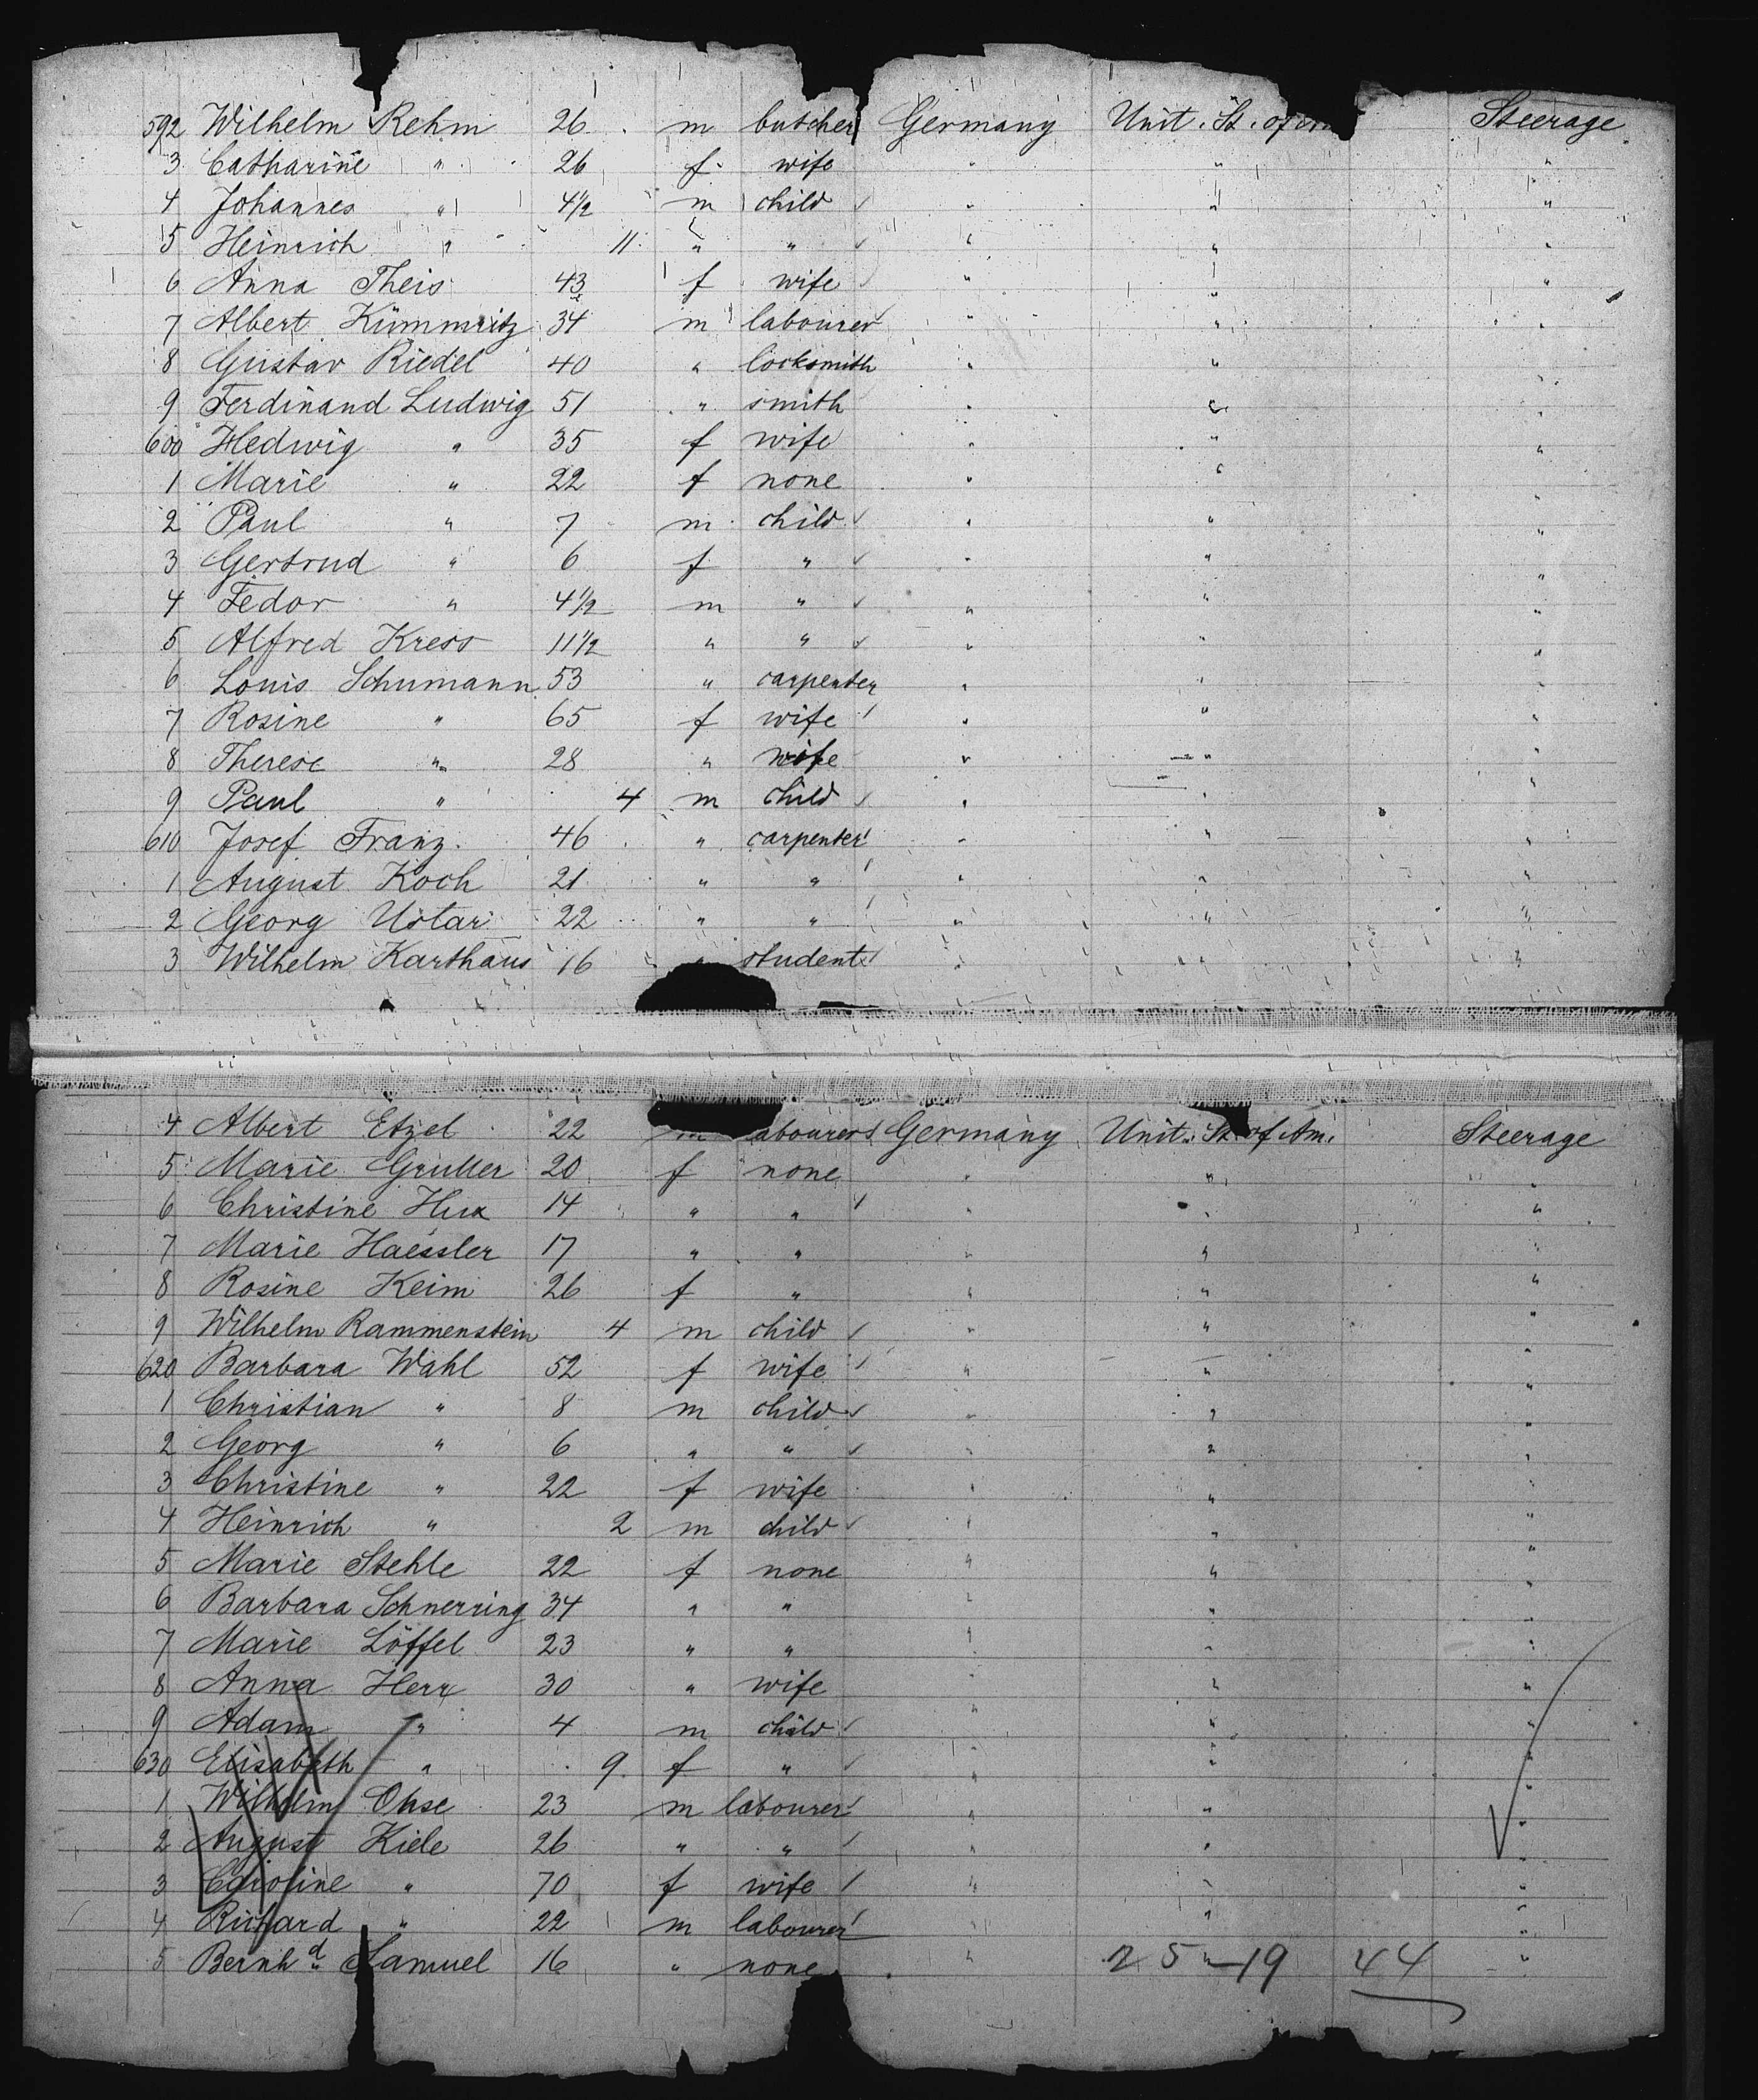 592 Wilhelm Rehm 26 m butcher Germany Unit. St. of Steerage
3 Catharine " 26 f wife " " "
4 Johannes " 4½ m child " " "
5 Heinrich " 11 " " " " "
6 Anna Theis 43 f wife " " "
7 Albert Kümmritz 34 m labourer " " "
8 Gustav Riedel 40 " locksmith " " "
9 Ferdinand Ludwig 51 " smith " " "
600 Hedwig " 35 f wife " " "
1 Marie " 22 f none " " "
2 Paul " 7 m child " " "
3 Gertrud " 6 f " " " "
4 Fedor " 4½ m " " " "
5 Alfred Kress 11½ " " " " "
6 Louis Schumann 53 " carpenter " " "
7 Rosine " 65 f wife " " "
8 Therese " 28 " wife " " "
9 Paul " 4 m child " " "
610 Josef Franz 46 " carpenter " " "
1 August Koch 21 " " " " "
2 Georg Ustar 22 " " " " "
3 Wilhelm Karthaus 16 " student " " "
4 Albert Etzel 22 m labourers Germany Unit. St. of Am. Steerage
5 Marie Gruller 20 f none " " "
6 Christine Hux 14 " " " " "
7 Marie Haessler 17 " " " " "
8 Rosine Keim 26 f " " " "
9 Wilhelm Rammenstein 4 m child " " "
620 Barbara Wahl 52 f wife " " "
1 Christian " 8 m child " " "
2 Georg " 6 " " " " "
3 Christine " 22 f wife " " "
4 Heinrich " 2 m child " " "
5 Marie Stehle 22 f none " " "
6 Barbara Schnerring 34 " " " " "
7 Marie Löffel 23 " " " " "
8 Anna Herr 30 " wife " " "
9 Adam " 4 m child " " "
630 Elisabeth " 9 f " " " "
1 Wilhelm Ohse 23 m labourer " " "
2 August Kiele 26 " " " " "
3 Caroline " 70 f wife " " "
4 Richard " 22 m labourer " " "
5 Bernhd Samuel 16 " none " " "
25-19 44